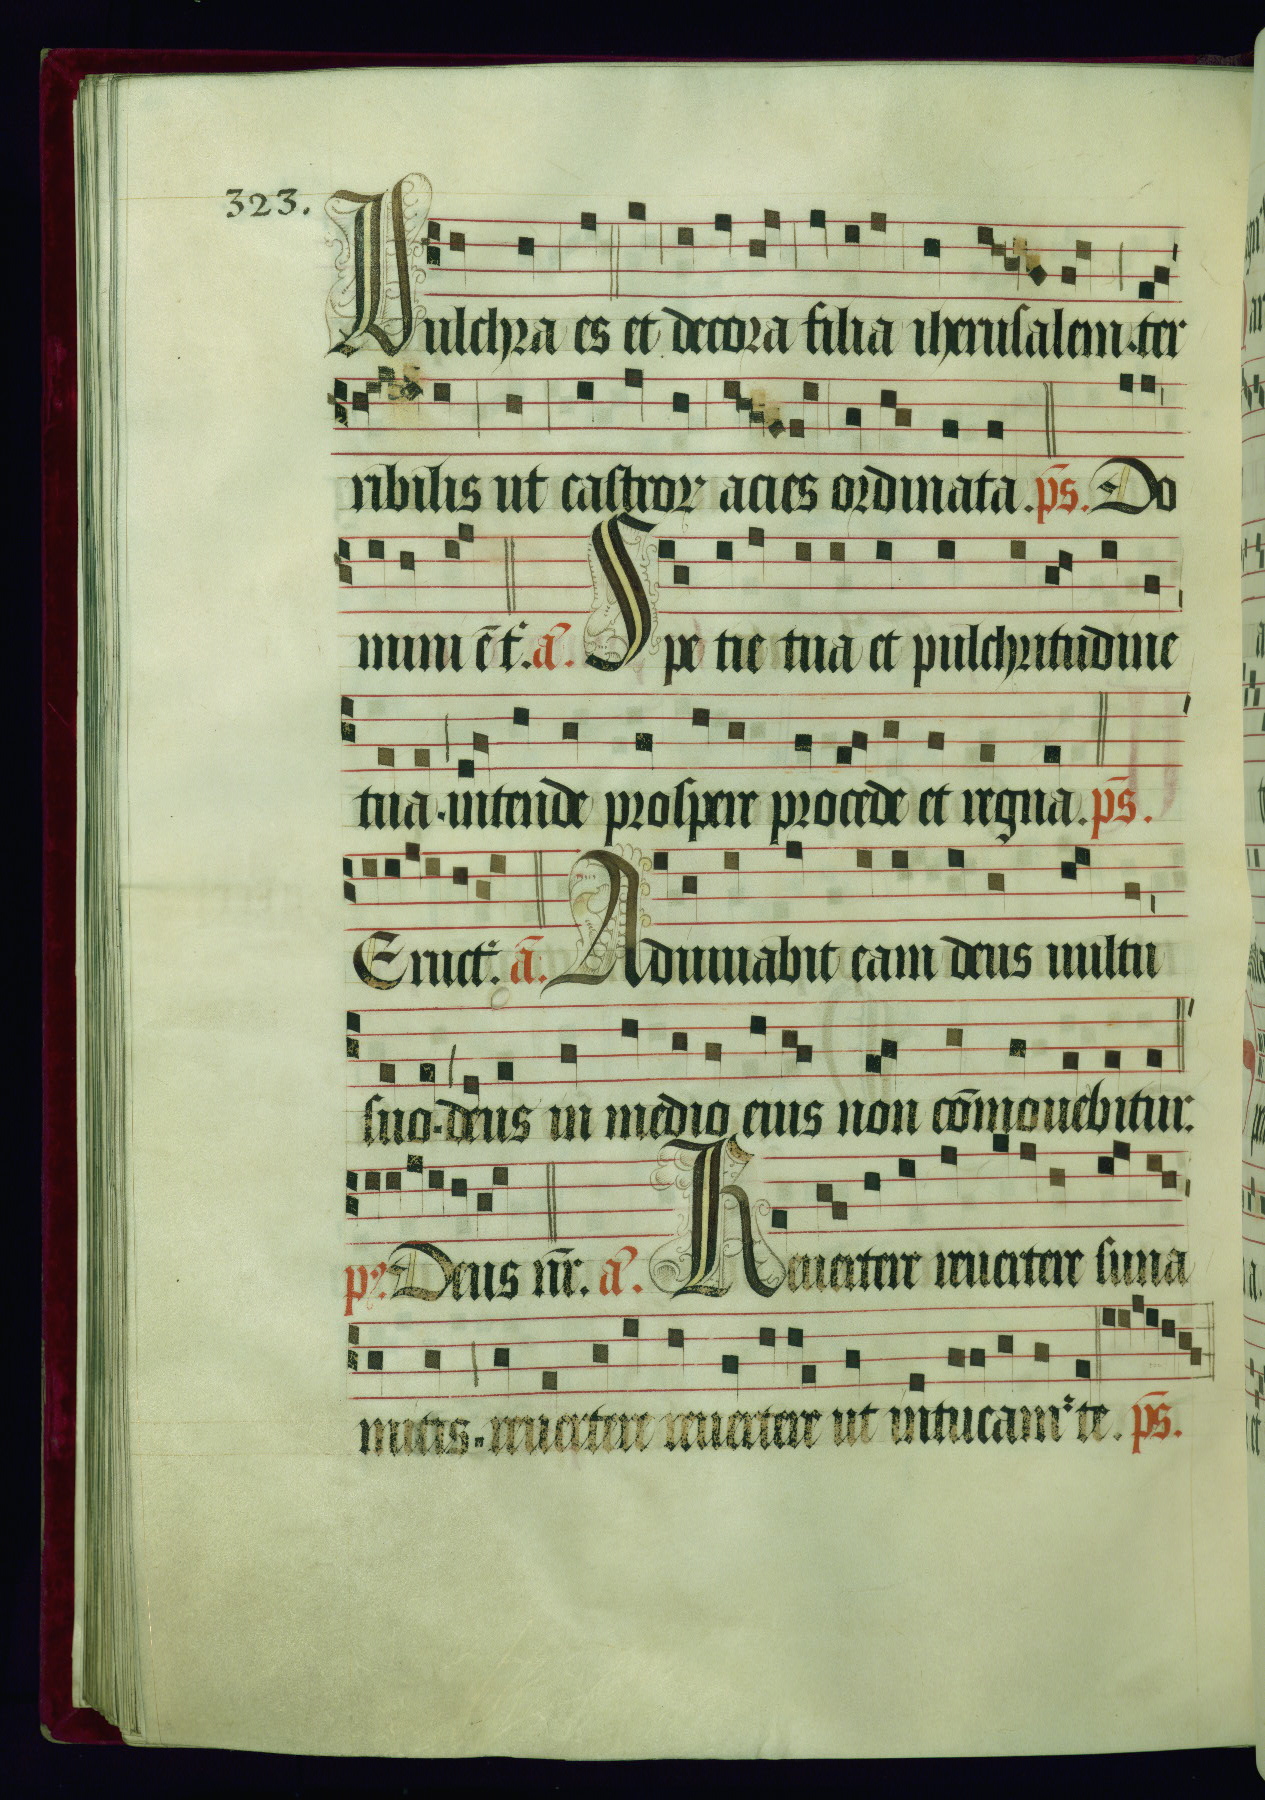 323.
Pulchra es et decora filia iherusalem. ter
ribilis ut castroꝝ acies ordinata. ps̄. Do
mini ēt̉. a͞. Spe tie tua et pulchritudine
tua. intende prospere procede et regna. ps̄.
Eruct̉. ā. Adiuuabit eam deus uultu
suo. deus in medio eius non cōmouebitur.
ps̉. Deus nr̄. a͞. Reuertere reuertere suna
mitis. reuertere reuertere ut intueamᷣ te. ps̄.